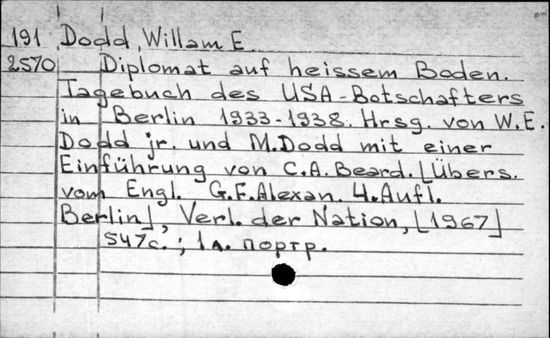 191 Dodd, Willam E.
2570 Diplomat auf heissem Boden.
Tagebuch des USA-Botschafters
in Berlin 1933-1938. Hrsg. von W.E.
Dodd jr. und M.Dodd mit einer
Einführung von C.A. Beard. ⌊Übers.
vom Engl. G.F.Alexan. 4.Aufl.
Berlin⌋, Verl. der Nation, ⌊1967⌋
547с.; 1л. портр.